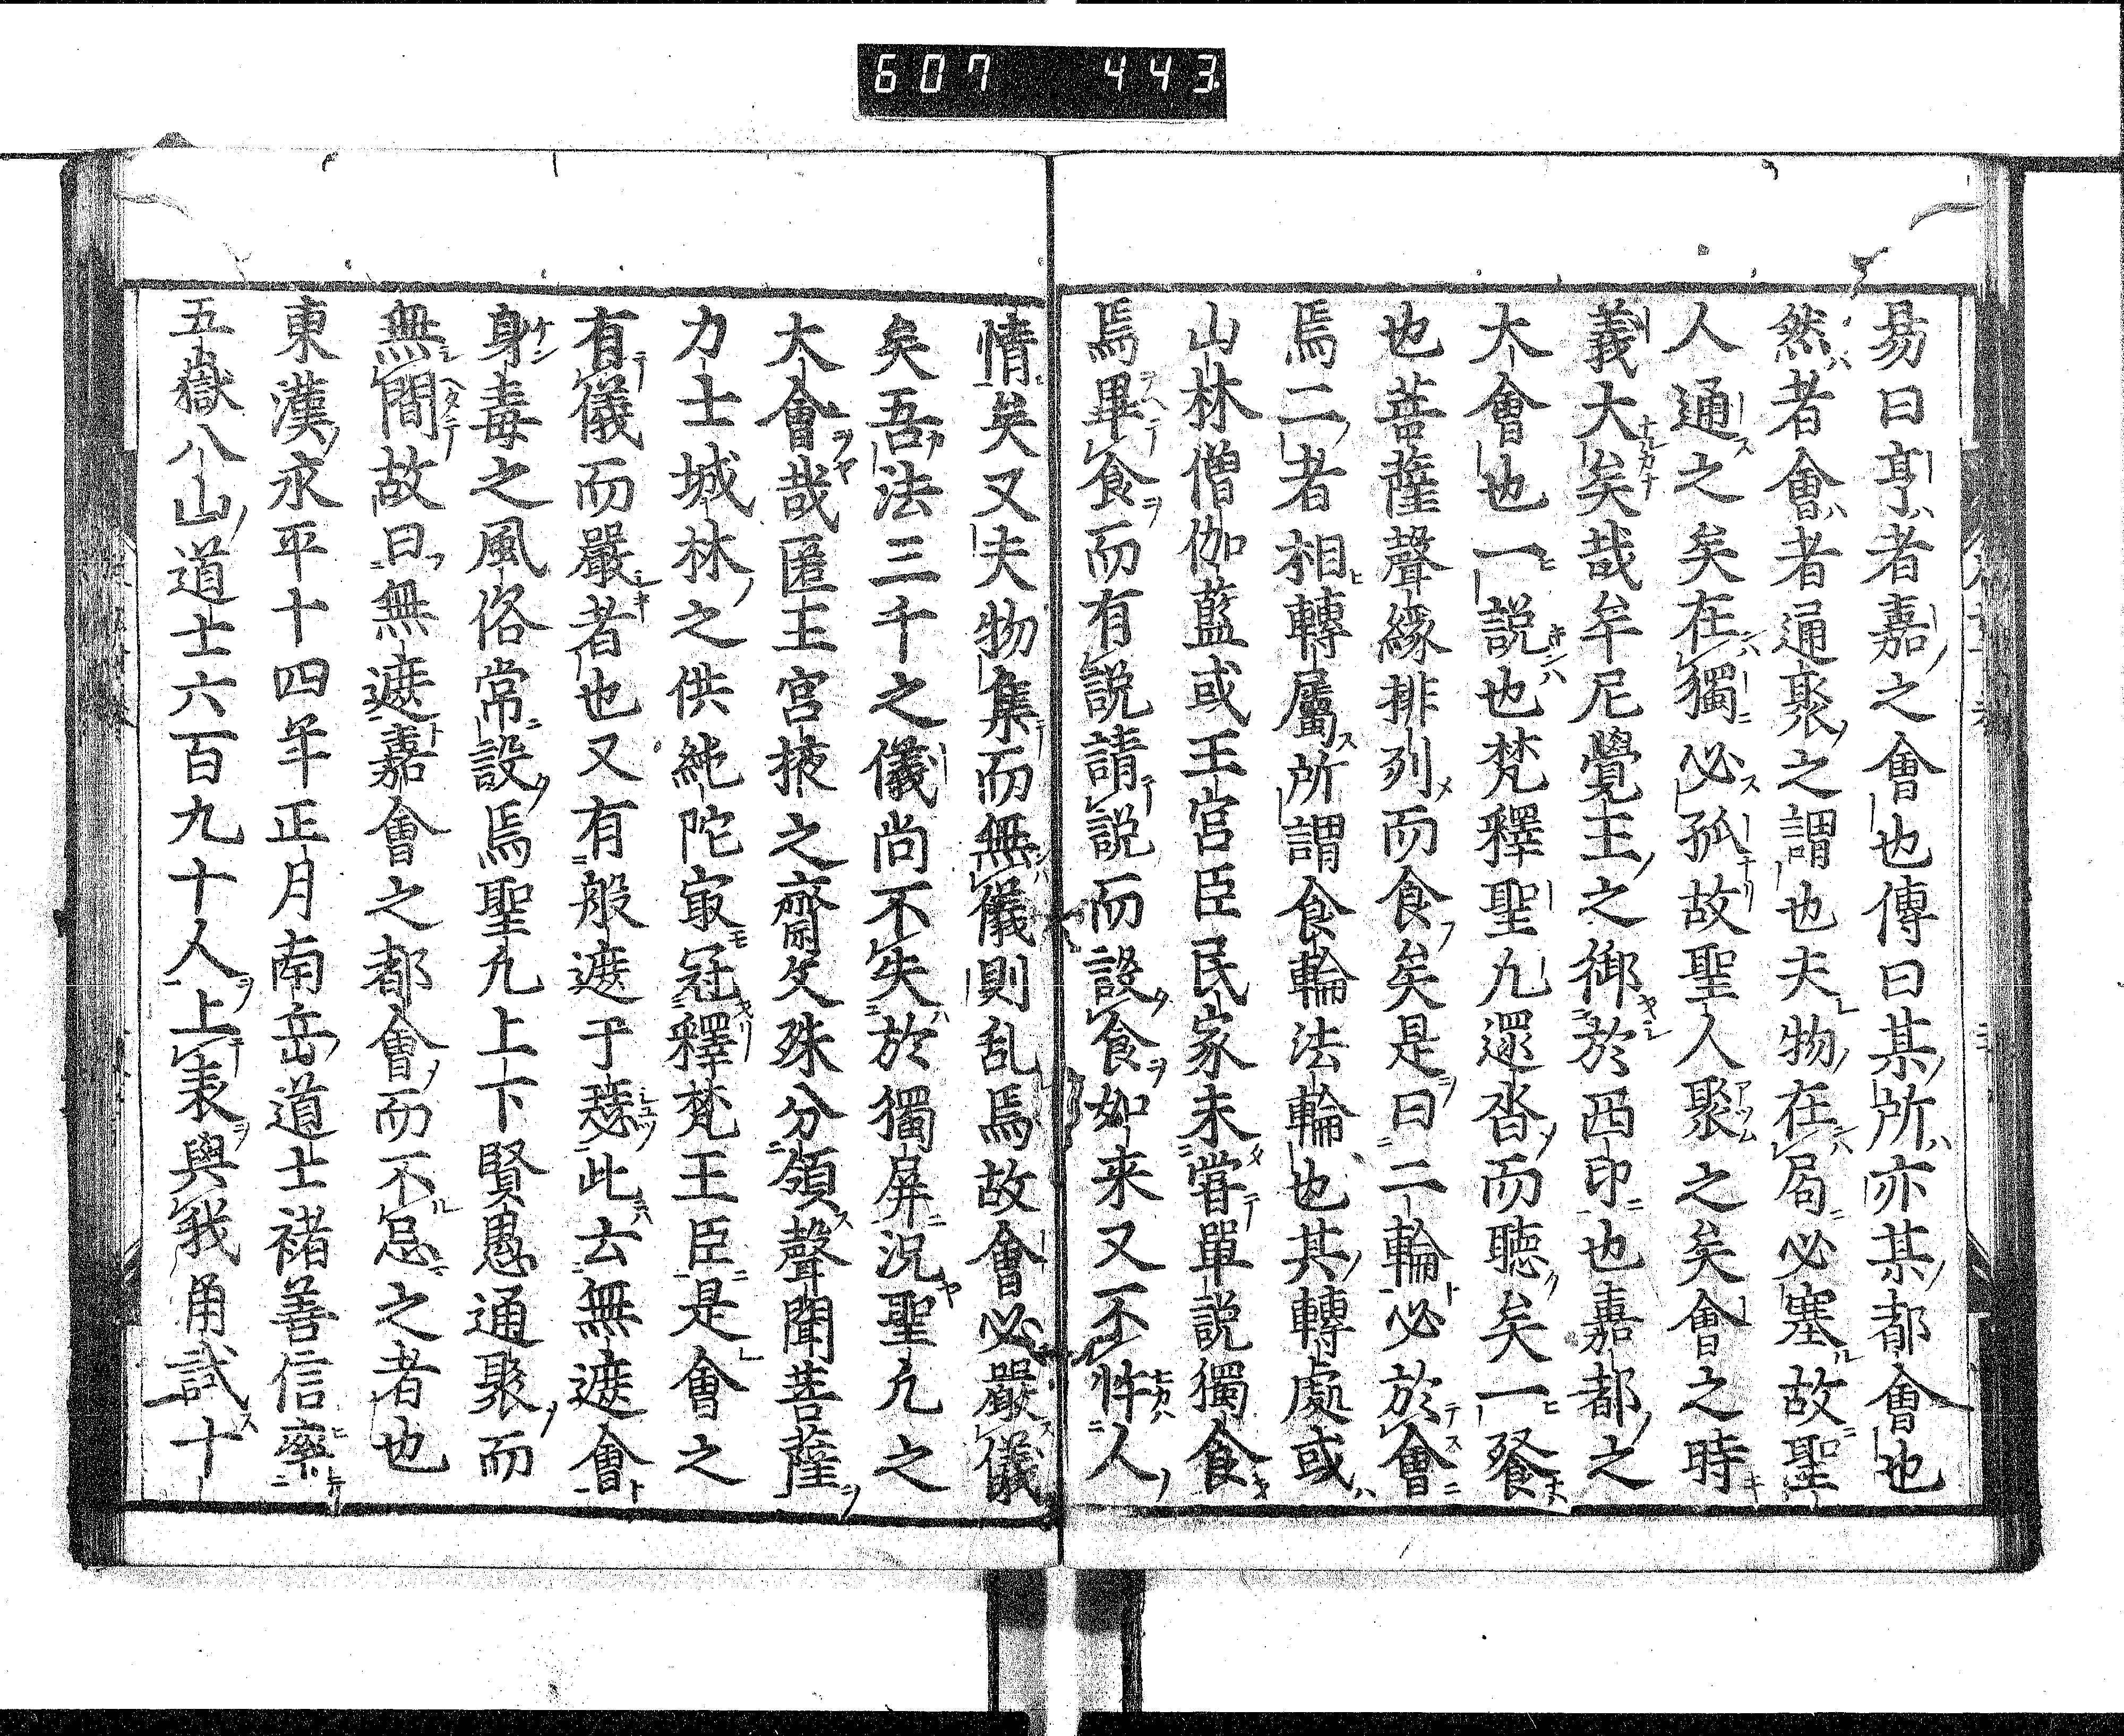 607 443
易曰亨者嘉之會也傳曰某所亦某都會也
然者會者通聚之謂也夫物在局必塞故聖
人通之矣在獨必孤故聖人聚之矣會之時
義大矣哉牟尼覺王之御於西印也嘉都之
大會也一說也梵釋聖凡還沓而聽矣一飱
也菩薩聲緣排列而食矣是曰二輪必於會
焉二者相轉屬所謂食輪法輪也其轉處或
山林僧伽藍或王宮臣民家未嘗單說獨食
焉畢食而有說請說而設食如来又不忤人
情矣又夫物集而無儀則乱焉故會必嚴儀
矣吾法三千之儀尚不失於獨屏況聖凡之
大會哉匿王宮掖之齋文殊分領聲聞菩薩
力士城林之供純陀㝡冠釋梵王臣是會之
有儀而嚴者也又有般遮于瑟此云無遮會
身毒之風俗常設焉聖凡上下賢愚通聚而
無間故曰無遮嘉會之都會而不忌之者也
東漢永平十四年正月南岳道士褚善信率
五嶽八山道士六百九十人上表與我角試十